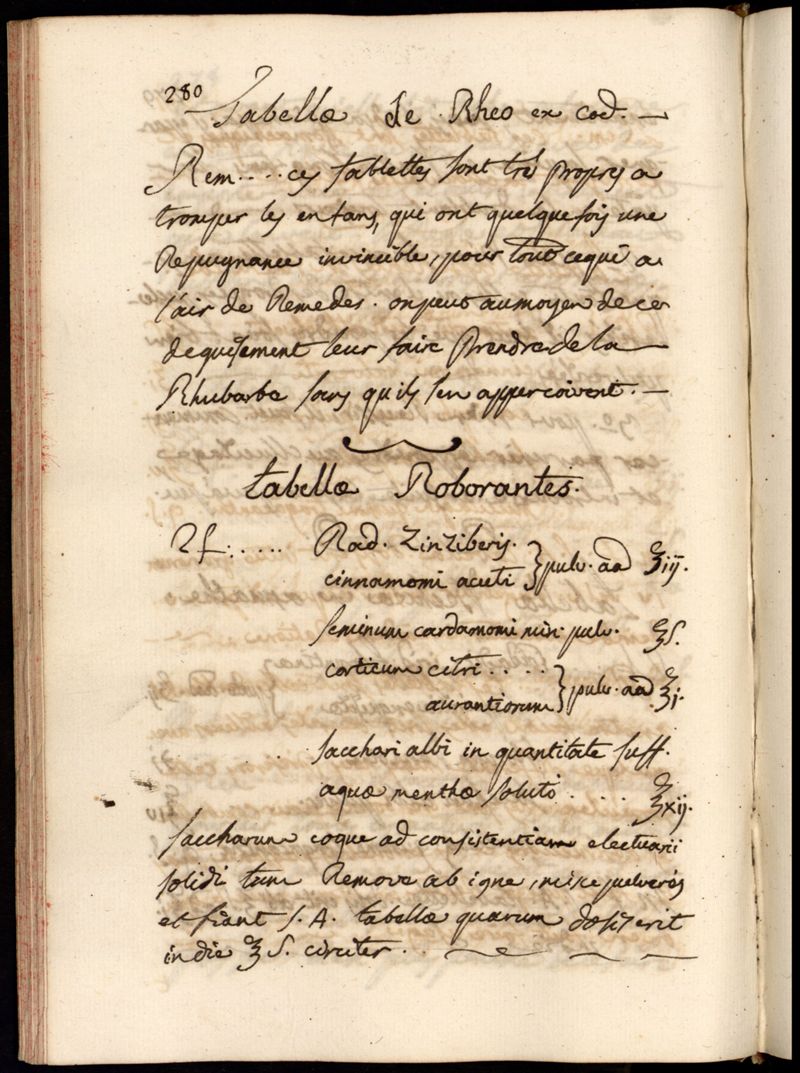 280
Tabellæ de Rheo ex cod. —
Rem.... ces tablettes sont trés propres a
tromper les enfans, qui ont quelque fois une
Repugnance invincible, pour tout cequi a
l'air de Remedes. on peut au moyen de ce
deguisement leur faire Prendre de la
Rhubarbe sans qu'ils s'en appercoivent. —
tabellæ Roborantes.
♃.:.... Rad. Zinziberis.
cinnamomi acuti } pulv. aa ʒiij.
seminum cardamomi min. pulv. ʒS.
corticum citri ....
aurantiorum } pulv. aa ʒi.
sacchari albi in quantitate suff.
aquæ menthæ soluti .... ℥xij.
saccharum coque ad consistentiam electuarii
solidi tum Remove ab igne, misce pulveres
et fiant S. A. tabellæ quarum dosis erit
in die ℥ S. circiter. —